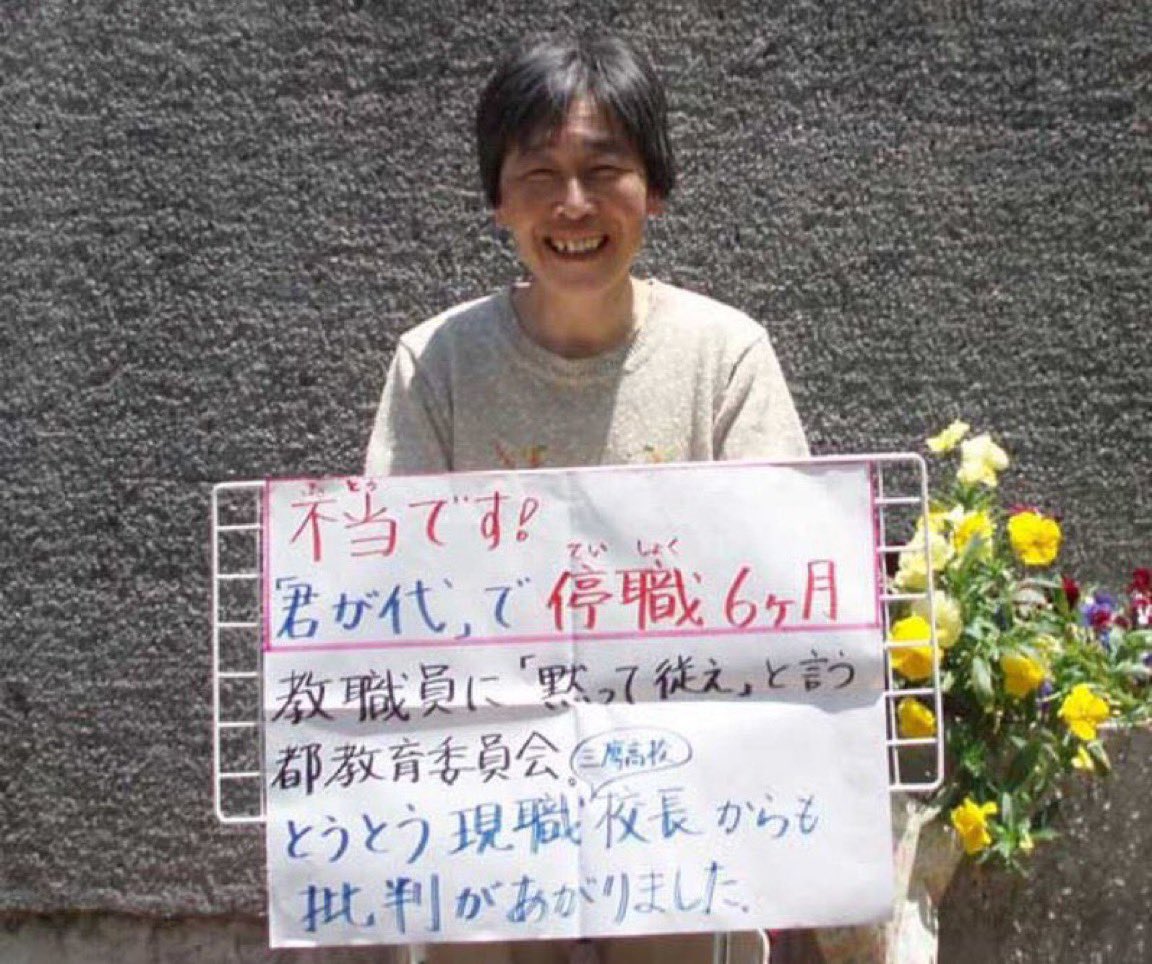 ふとう
不当です!
ていしょく
「君が代」で停職6ヶ月
教職員に「黙って従え」と言う
都教育委員会。
三鷹高校
とうとう現職校長からも
批判があがりました。